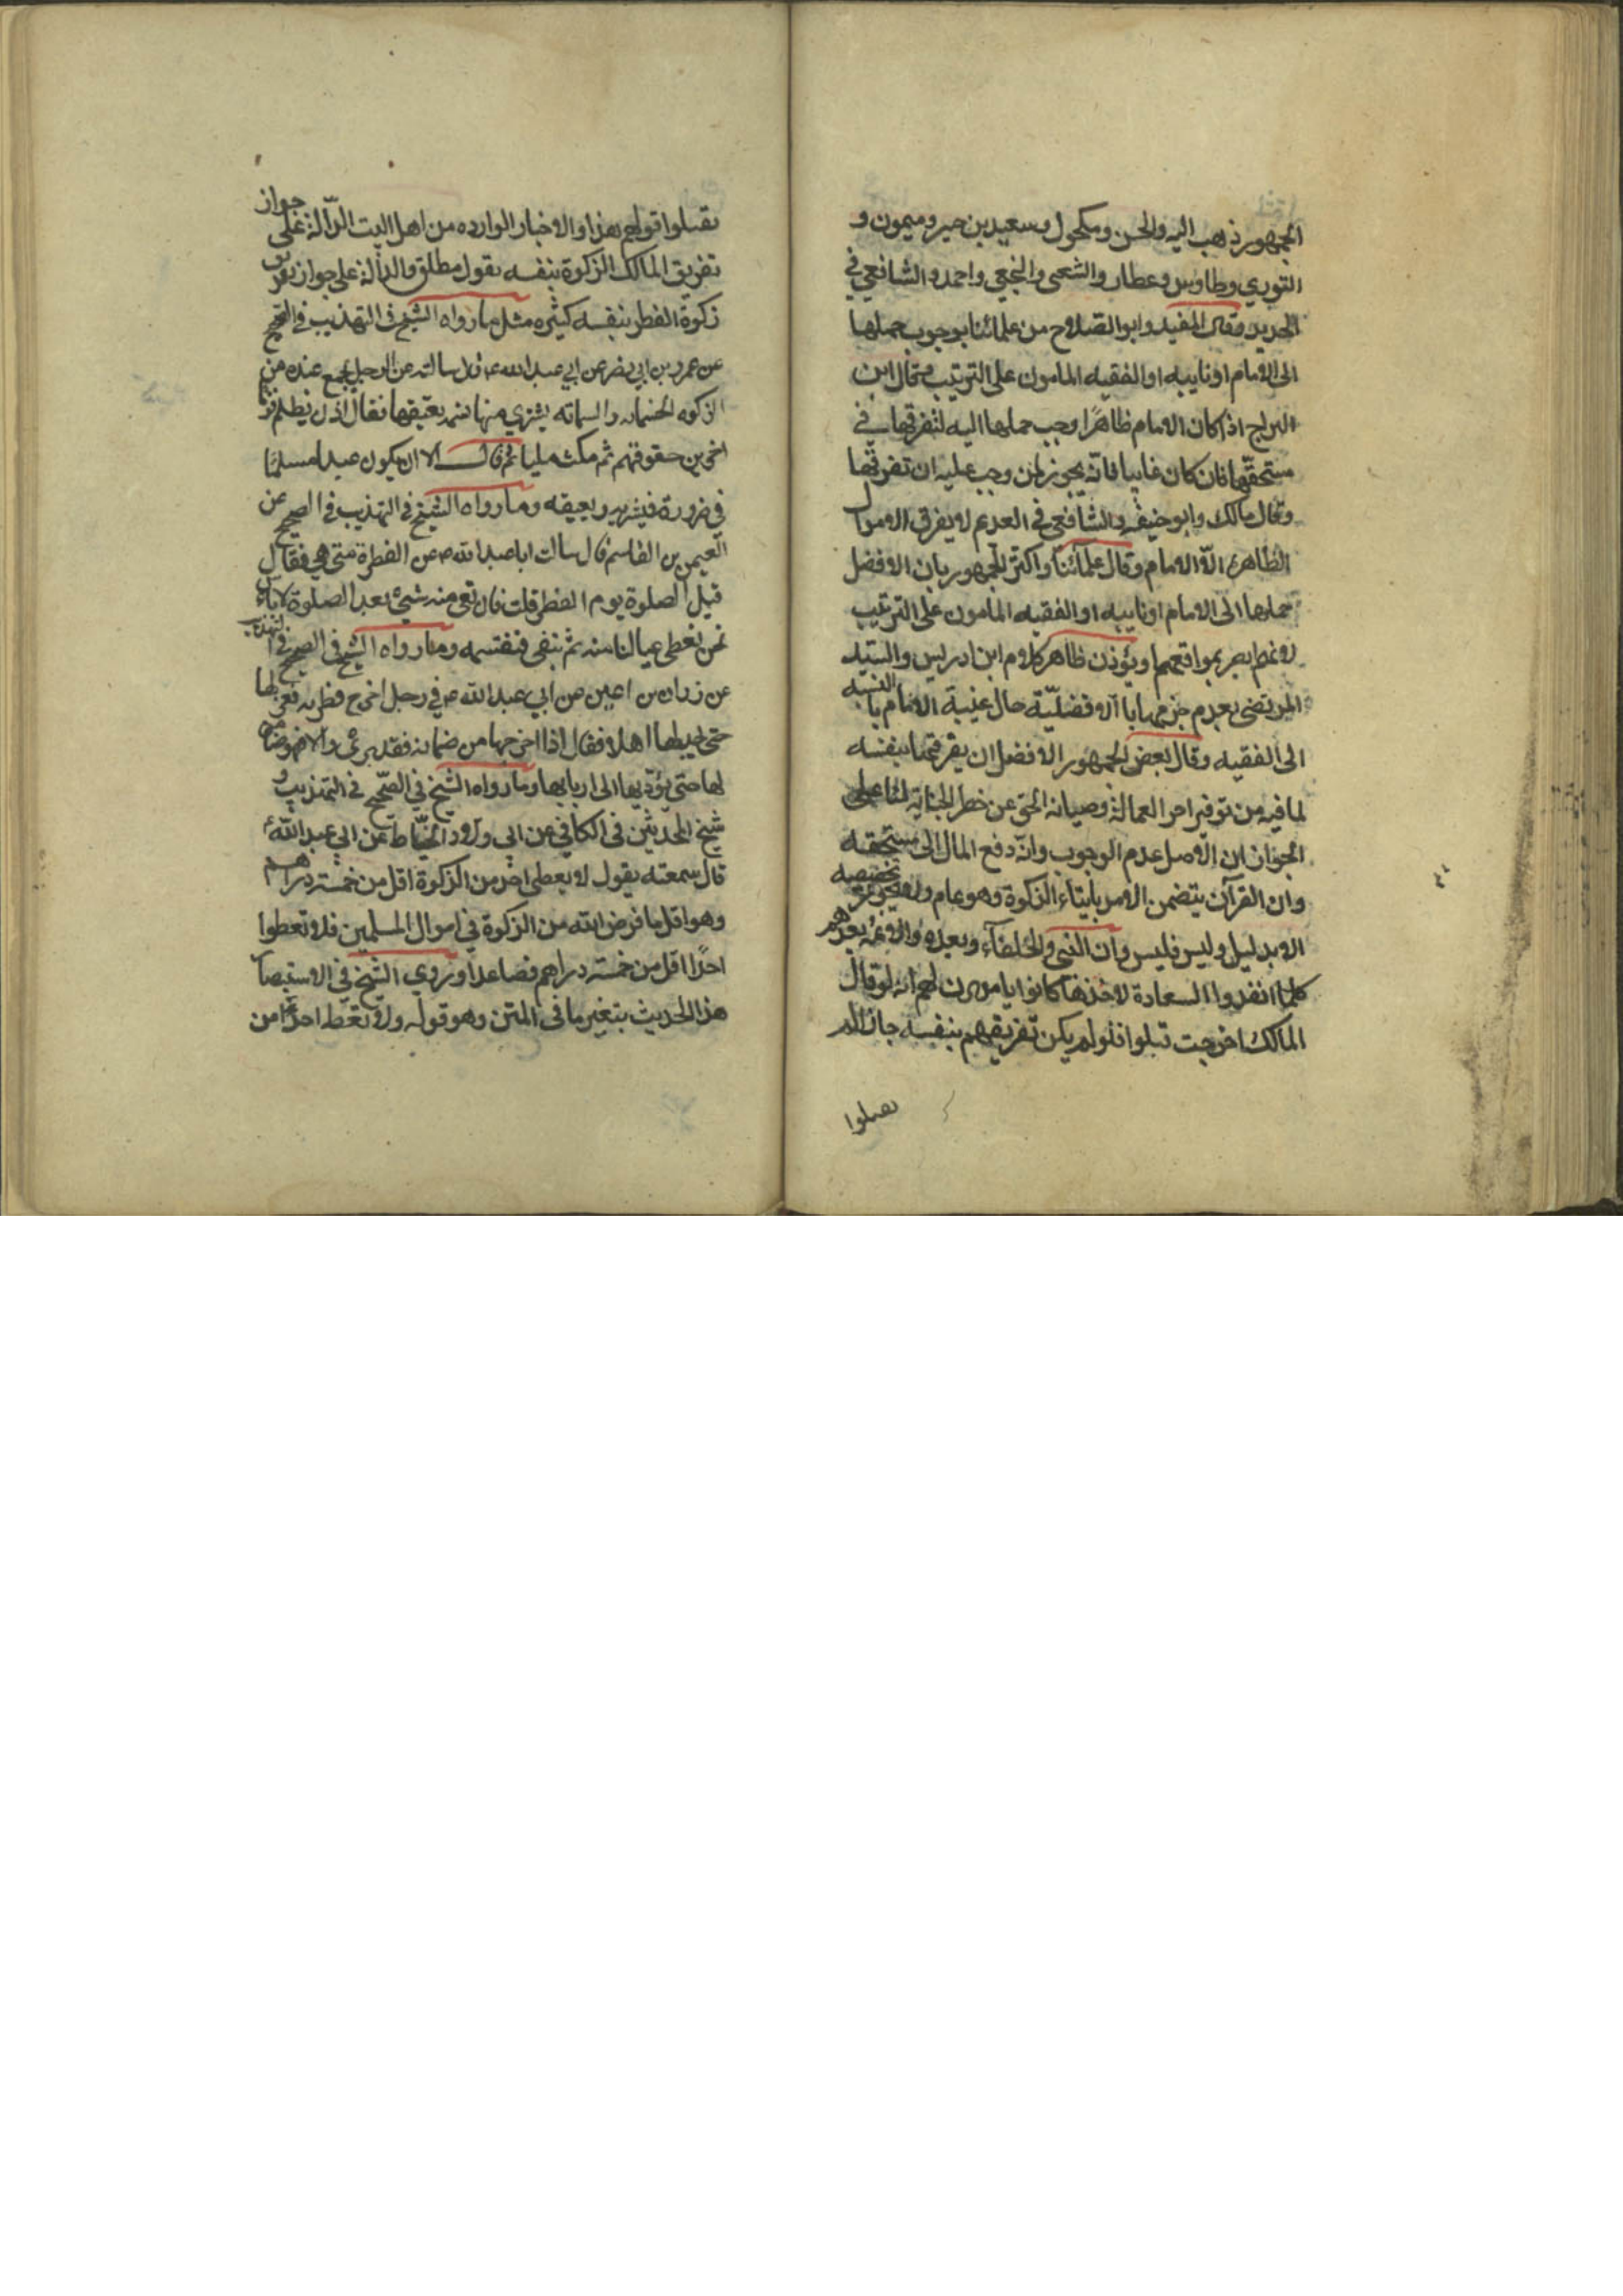 الجمهور ذهب اليه والحسن ومكحول وسعيد بن جبير وميمون و
الثوري وطاوس وعطار والشعبى والنخعي واحمد والشافعي في
الجديد وقال المفيد وابو الصلاح من علمائنا بوجوب حملها
الى الامام او نايبه او الفقيه المامون على الترتيب وقال ابن
البراج اذا كان الامام ظاهرًا وجب حملها اليه لتفرقتها في
مستحقّها فان كان غايبا فانّه يجوز لمن وجب عليه ان تفرقها
وقال مالك وابو حنيفه والشافعي في القديم لا يفرق الاموال
الظاهرة الّا الامام وقال علمائنا واكثر الجمهور بان الافضل
حملها الى الامام او نايبه او الفقيه المامون على الترتيب
لانهم ابصر بمواقعهما ويؤذن ظاهر كلام ابن ادريس والسيد
المرتضى بعدم جزمهما بالافضليّة حال غيبة الامام بالنسبه
الى الفقيه وقال بعض الجمهور الافضل ان يفرقها بنفسه
لما فيه من توفير اجر العمالة وصيانة الحق عن خطر الجناية لنا على
الجواز ان الاصل عدم الوجوب وانّه دفع المال الى مستحقه
وان القرآن يتضمن الامر بايتاء الزكوة وهو عام ولا يجوز تخصيصه
الا بدليل وليس فليس وان النبي والخلفاء وبعده والائمة بعدهم
كلما انفدوا السعادة لاخذها كانوا يامرون لهم انه لو قال
المالك اخرجت قبلوا فلو لم يكن تفريقهم بنفسه جاز لم
يقبلوا
يقبلوا قولهم هذا والاخبار الوارده من اهل البيت الدّالة على جواز
تفريق المالك الزكوة بنفسه بقول مطلق والدالة على جواز تفريق
زكوة الفطر بنفسه كثيره مثل ما رواه الشيخ في التهذيب في الصحيح
عن عمرو بن ابي نصر عن ابي عبد الله ع قال سالته عن الرجل يجمع عنده من
الزكوه الخمسمائه والستمائه يشتري منها نسمه يعتقها فقال اذن يظلم قوما
اخرين حقوقهم ثم مكث مليا ثم قال الا ان يكون عبدا مسلما
في ضرورة فيشتريه ويعتقه وما رواه الشيخ في التهذيب في الصحيح عن
العيص بن القاسم قال سالت ابا عبد الله ع عن الفطرة متى هي فقال
قبل الصلوة يوم الفطر قلت فان بقى منه شيئ بعد الصلوة قال لا باس
نحن نعطى عيالنا منه ثم نبقى فنقسمه وما رواه الشيخ في الصحيح في التهذيب
عن زراره بن اعين عن ابي عبد الله ع في رجل اخرج فطرته فعزلها
حتى يجد لها اهلا فقال اذا اخرجها من ضمانه فقد برئ والا فهو ضامن
لها حتى يؤدّيها الى اربابها وما رواه الشيخ في الصّحيح في التهذيب و
شيخ المحدثين في الكافي عن ابي ولّاد الحنّاط عن ابي عبد الله ع
قال سمعته يقول لا يعطى احد من الزكوة اقل من خمسة دراهم
وهو اقل ما فرض الله من الزكوة في اموال المسلمين فلا تعطوا
احدًا اقل من خمسة دراهم فصاعدا وروي الشيخ في الاستبصار
هذا الحديث بتغير ما في المتن وهو قوله ولا تعط احدًا من